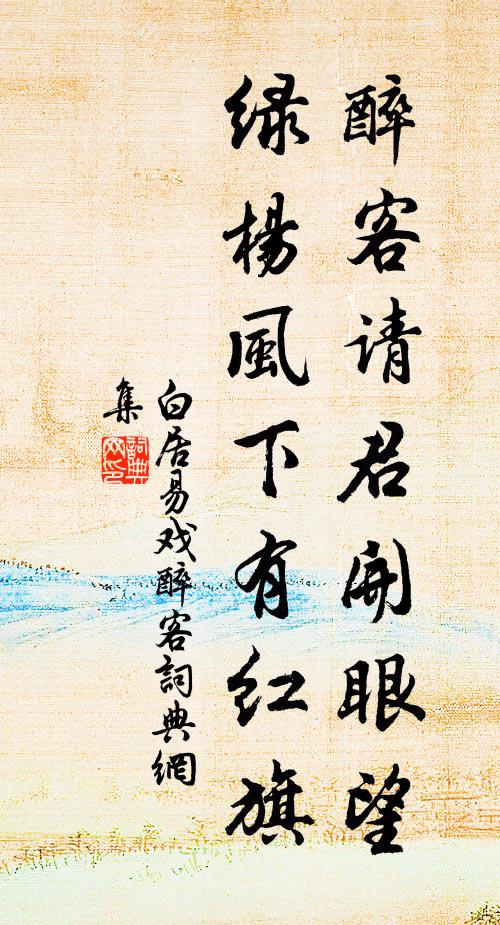 醉客请君开眼望
绿杨風下有红旗
白居易戏醉客詞典網
集
詞典
网印